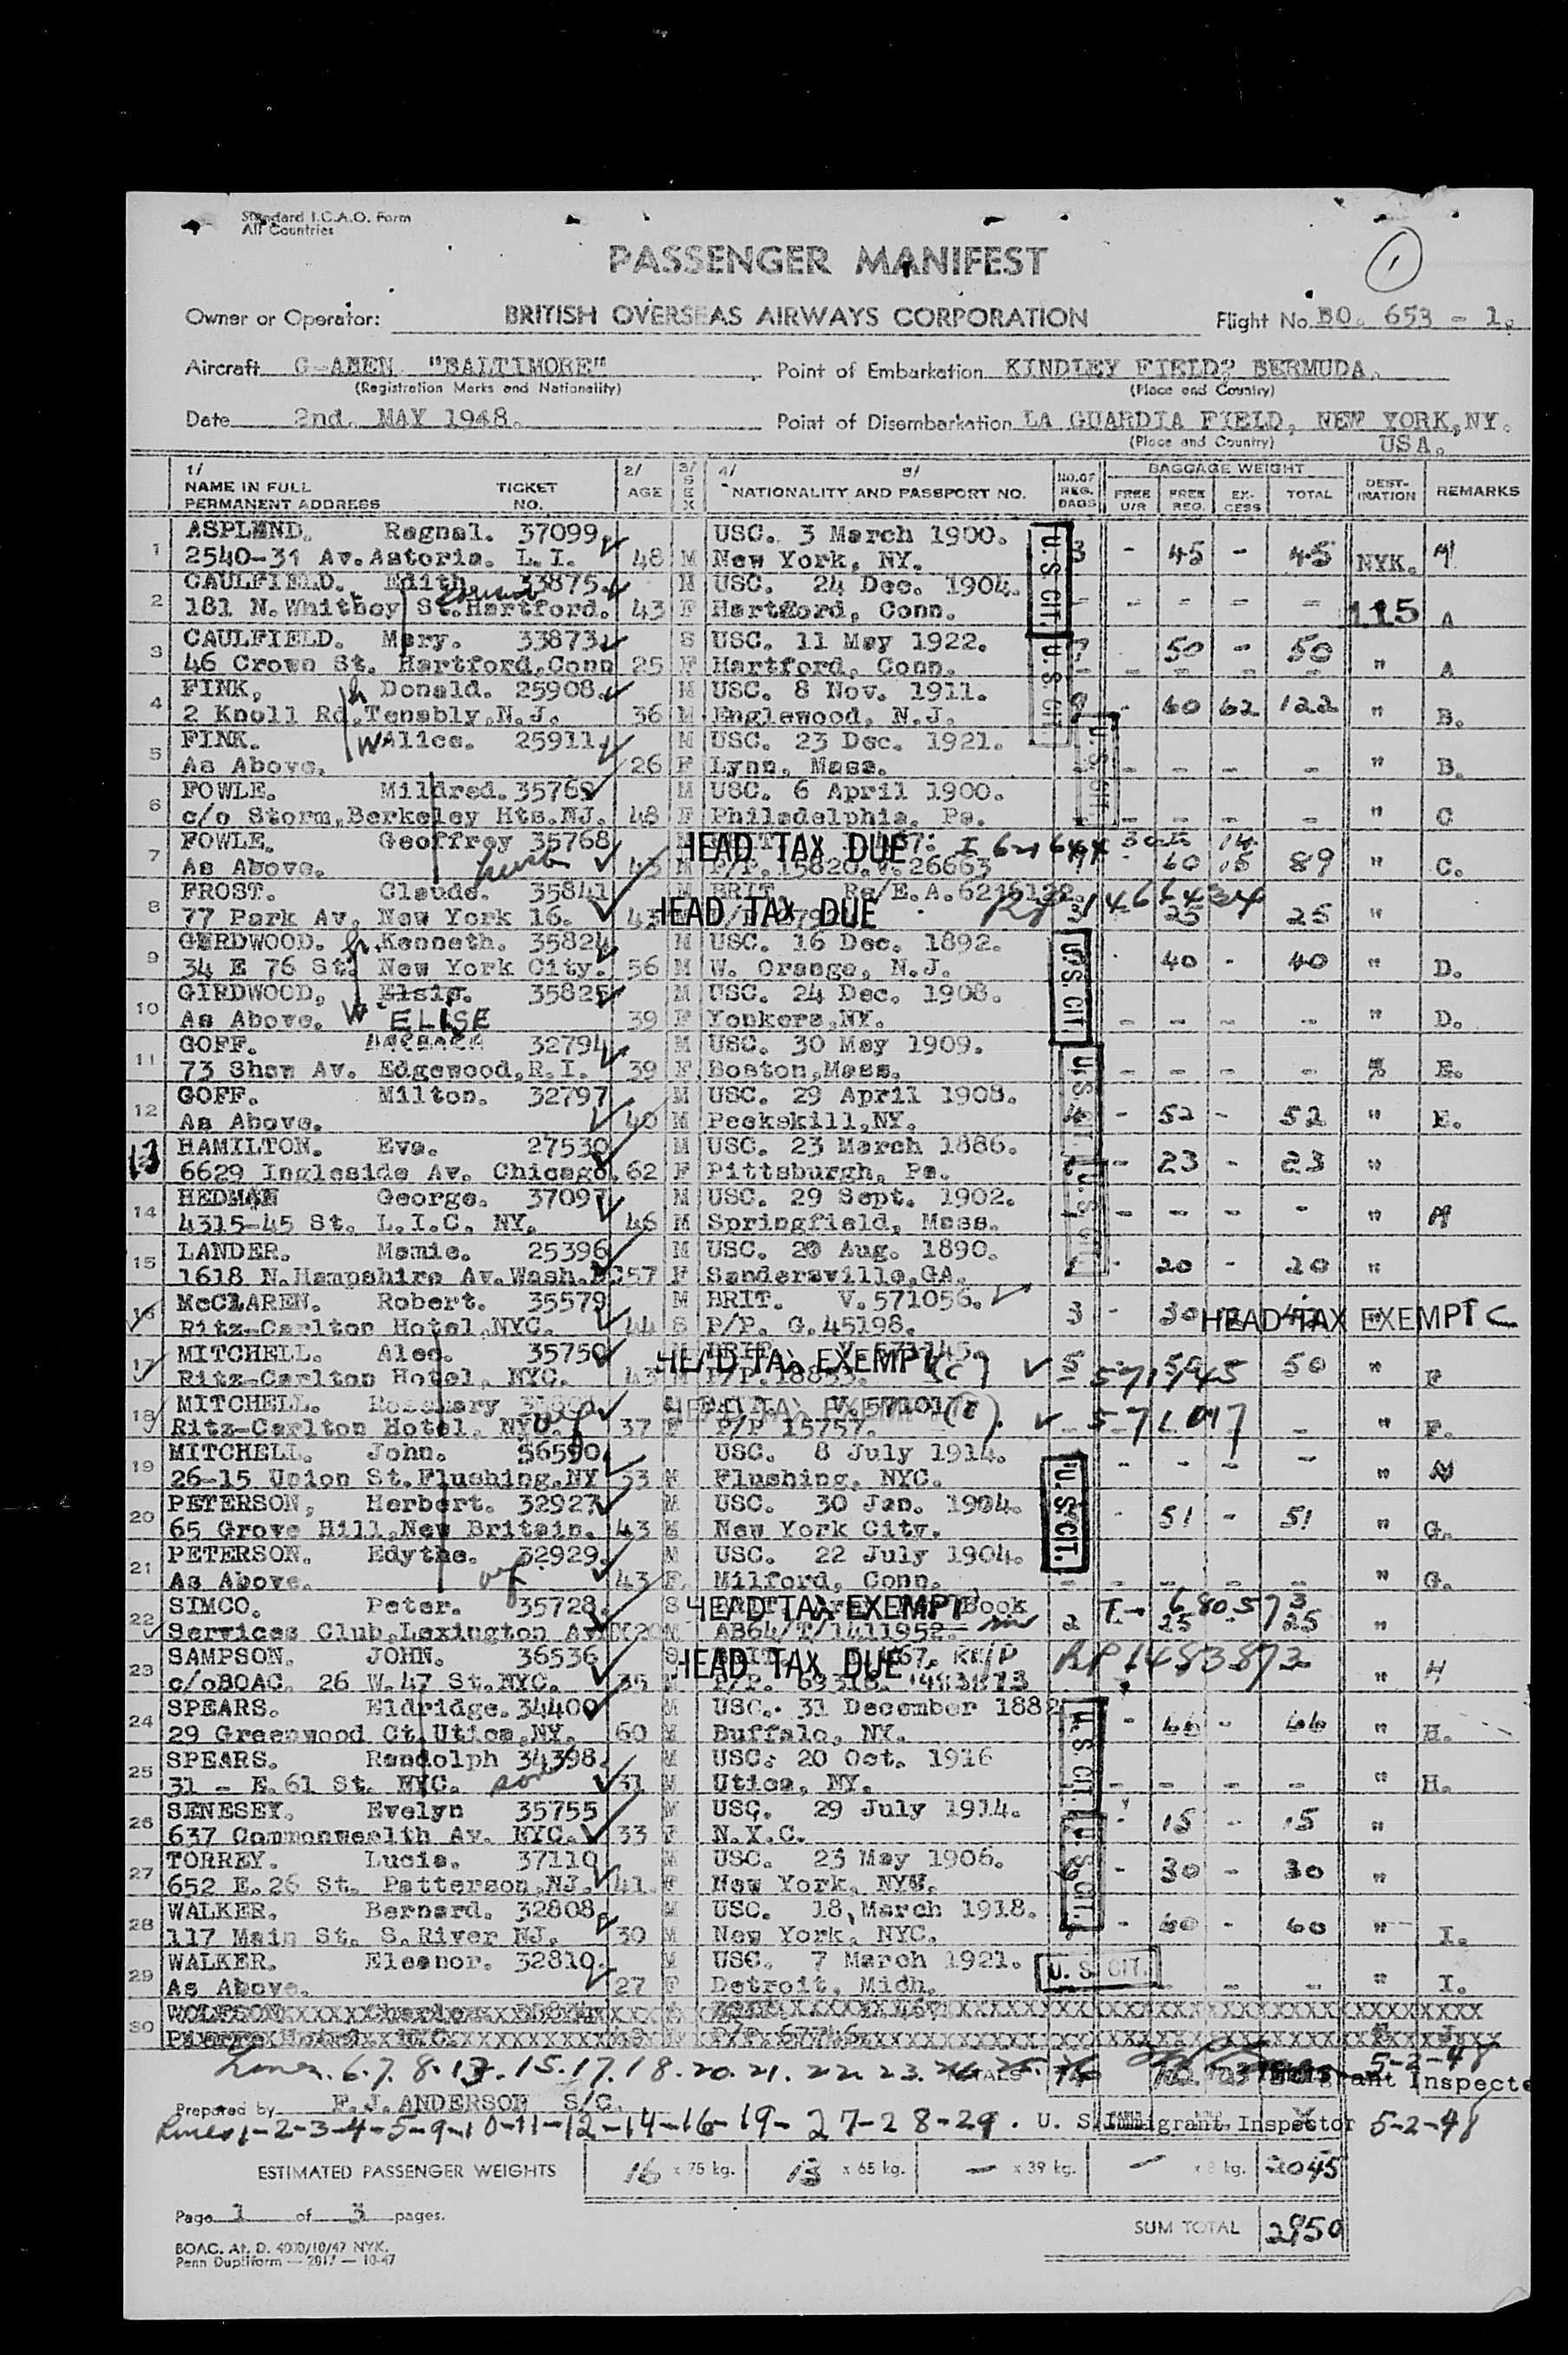 Standard I.C.A.O. Form
All Countries
PASSENGER MANIFEST
1
Owner or Operator: BRITISH OVERSEAS AIRWAYS CORPORATION Flight No. BO. 653 - 1.
Aircraft "BALTIMORE" Point of Embarkation KINDLEY FIELD? BERMUDA.
(Registration Marks and Nationality) (Place and Country)
Date 2nd. MAY 1948. Point of Disembarkation LA GUARDIA FIELD, NEW YORK, NY.
(Place and Country) USA.
1/ 2/ 3/ 4/ 5/ NO. OF BAGGAGE WEIGHT
NAME IN FULL TICKET AGE SEX NATIONALITY AND PASSPORT NO. REG. FREE FREE EX- TOTAL DEST- REMARKS
PERMANENT ADDRESS NO. BAGS U/R REG. CESS INATION
ASPLUND. Ragnal. 37099. USC. 3 March 1900.
1 2540-31 Av.Astoria. L.I. 48 M New York, NY. 3 - 45 - 45 NYK.
CAULFIELD. Edith. 33875. M USC. 24 Dec. 1904. U.S. CIT.
2 181 N.Whitney St.Hartford. 43 F Hartford, Conn. - - - - 115 A
CAULFIELD. Mary. 33873. S USC. 11 May 1922.
3 46 Crown St. Hartford,Conn 25 F Hartford, Conn. 50 - 50 " A
FINK, h Donald. 25908. M USC. 8 Nov. 1911. U.S. CIT.
4 2 Knoll Rd.Tenably,N.J. 36 M Englewood, N.J. 60 62 122 " B.
FINK. W Alice. 25911. M USC. 23 Dec. 1921.
5 As Above. 26 F Lynn, Mass. - - - - " B.
FOWLE. Mildred. 35769 M USC. 6 April 1900. U.S. CIT.
6 c/o Storm,Berkeley Hts.NJ. 48 F Philadelphia, Pa. - - - - " C
FOWLE. Geoffrey 35768 HEAD TAX DUE
7 As Above. 45 M P/P. 15820.V.26663 60 15 89 " C.
FROST. Claude. 35841 M BRIT. Re/E.A.6216132
8 77 Park Av. New York 16. 43 HEAD TAX DUE 1466434 25 25 "
GERDWOOD. h. Kenneth. 35824 M USC. 16 Dec. 1892.
9 34 E 76 St. New York City. 56 M W. Orange, N.J. 40 - 40 " D.
GIRDWOOD, Elsie. 35825 M USC. 24 Dec. 1908. U.S. CIT.
10 As Above. W ELISE 39 F Yonkers,NY. - - - - " D.
GOFF. 32794 M USC. 30 May 1909.
11 73 Shaw Av. Edgewood,R.I. 39 F Boston,Mass. - - - - E.
GOFF. Milton. 32797 M USC. 29 April 1908. U.S. CIT.
12 As Above. 40 M Peekskill,NY. 4 - 52 - 52 " E.
HAMILTON. Eva. 27530 M USC. 23 March 1886.
13 6629 Ingleside Av. Chicago. 62 F Pittsburgh, Pa. - 23 - 23 "
HEDMAN George. 37097 M USC. 29 Sept. 1902. U.S. CIT.
14 4315-45 St. L.I.C. NY. 46 M Springfield, Mass. - - - - "
LANDER. Mamie. 25396 M USC. 20 Aug. 1890.
15 1618 N.Hampshire Av.Wash.DC 57 F Sandersville,GA. 1 - 20 - 20 "
McCLAREN. Robert. 35579 M BRIT. V.571056.
16 Ritz-Carlton Hotel,NYC. 44 S P/P. G.45198. 3 - 30 HEAD TAX EXEMPT C
MITCHELL. Alec. 35750 HEAD TAX EXEMPT (C)
17 Ritz-Carlton Hotel, NYC. 43 M P/P.18853. 5 571145 50 50 " F
MITCHELL. Rosemary HEAD TAX EXEMPT (C).
18 Ritz-Carlton Hotel, NYC. wf 37 F P/P 15757. 571017 " F.
MITCHELL. John. 36590. USC. 8 July 1914.
19 26-15 Union St.Flushing.NY 33 M Flushing, NYC. - - - - "
PETERSON, Herbert. 32927 M USC. 30 Jan. 1904. U.S. CIT.
20 65 Grove Hill,New Britain. 43 M New York City. - 51 - 51 " G.
PETERSON. Edythe. 32929. M USC. 22 July 1904.
21 As Above. wf 43 F. Milford, Conn. - - - - " G.
SIMCO. Peter. 35728. S HEAD TAX EXEMPT Book
22 Services Club,Lexington Av. M AB64/T/1411952. 2 T- 680573 25 25 "
SAMPSON. JOHN. 36536 S HEAD TAX DUE
23 c/oBOAC. 26 W.47 St.NYC. 35 M P/P. 69318. 1483873 RP 1483873 " H
SPEARS. Eldridge. 34400 M USC. 31 December 1882
24 29 Greenwood Ct.Utica,NY. 60 M Buffalo, NY. - 44 - 44 " H.
SPEARS. Randolph 34398. M USC: 20 Oct. 1916 U.S. CIT.
25 31 - E.61 St. NYC. son 31 M Utica, NY. - - - - " H.
SENESEY. Evelyn 35755 M USC. 29 July 1914.
26 637 Commonwealth Av. NYC. 33 F N.Y.C. - 15 - 15 "
TORREY. Lucia. 37110 M USC. 23 May 1906. U.S. CIT.
27 652 E.26 St. Patterson,NJ. 41. F New York, NYC. - 30 - 30 "
WALKER. Bernard. 32808. M USC. 18 March 1918.
28 117 Main St. S.River NJ. 30 M New York, NYC. - 60 - 60 " I.
WALKER. Eleanor. 32810. M USC. 7 March 1921.
29 As Above. 27 F Detroit, Midh. U. S. CIT. - - - " I.
30
Lines. 6.7. 8.13.15.17.18.20.21.22.23. TOTALS 5-2-48
Immigrant Inspector
Prepared by F.J.ANDERSON S/C.
Lines 1-2-3-4-5-9-10-11-12-14-16-19-27-28-29. U. S. Immigrant Inspector 5-2-48
ESTIMATED PASSENGER WEIGHTS 16 x 75 kg. 13 x 65 kg. - x 39 kg. - x 8 kg. 2045
Page 1 of 3 pages. SUM TOTAL 2950
BOAC. At. D. 4000/10/47 NYK.
Penn Dupliform — 2817 — 10-47